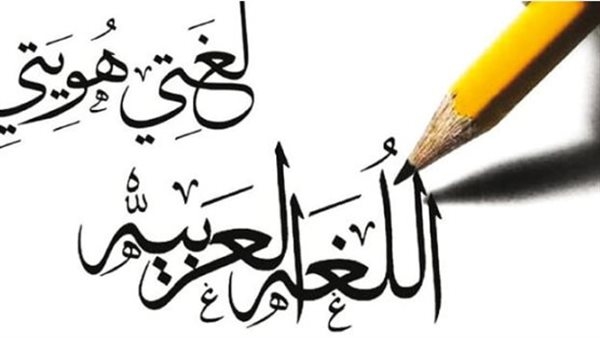 لغتي هويتي
اللغه العربيه